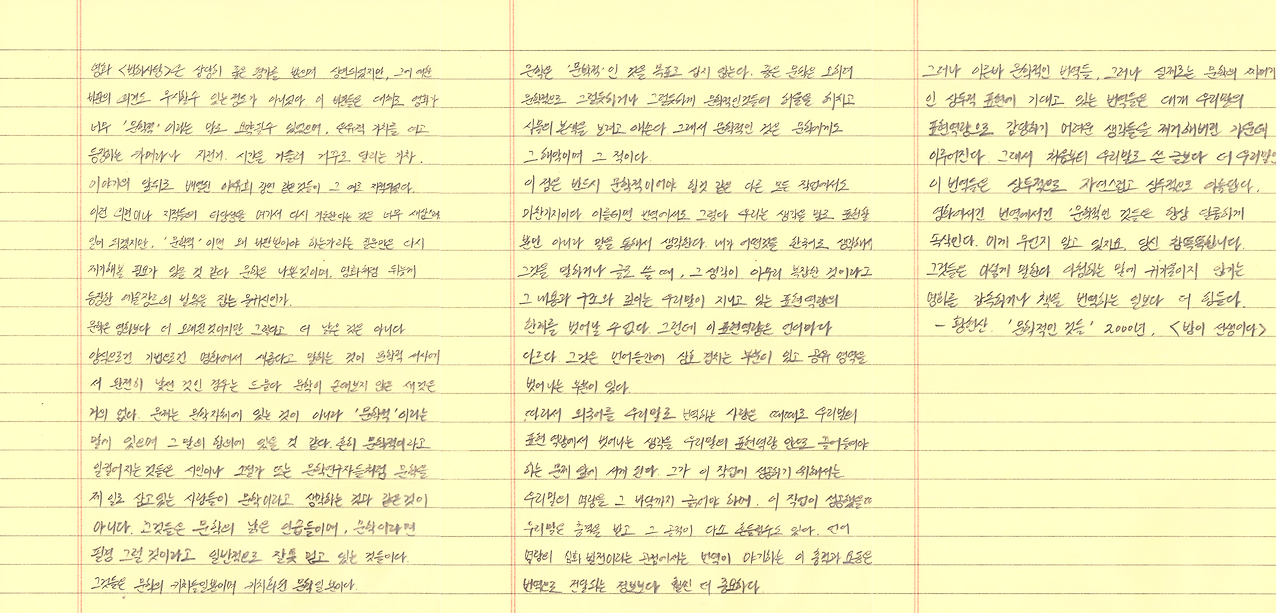 영화 <박하사탕>은 상당히 좋은 평가를 받으며 상연되었지만, 그에 대한
비판의 의견도 무시할 수 있는 정도가 아니었다 이 비판들은 대체로 영화가
너무 '문학적'이라는 말로 요약할 수 있었으며, 은유적 가치를 띠고
등장하는 카메라나 자전거. 시간을 거슬러 거꾸로 달리는 기차.
이야기의 앞뒤로 배열된 야유회 장면 같은 것들이 그 예로 지적되었다.
이런 의견이나 지적들의 타당성을 여기서 다시 거론한다는 것은 너무 새삼스러운
일이 되겠지만, '문학적'이면 왜 나쁜 것이어야 하는가라는 질문만은 다시
제기해볼 필요가 있을 것 같다 문학은 나쁜 것이며, 영화처럼 뒤늦게
등장한 예술장르의 발목을 잡는 물귀신인가.
문학은 영화보다 더 오래된 것이지만 그렇다고 더 낡은 것은 아니다
양식으로건 기법으로건 영화에서 새롭다고 말하는 것이 문학적 서사에
서 완전히 낯선 것인 경우는 드물다 문학이 손대보지 않은 새것은
거의 없다. 문제는 문학자체에 있는 것이 아니라 '문학적'이라는
말에 있으며 그 말의 함의에 있을 것 같다. 흔히 문학적이라고
일컬어지는 것들은 시인이나 소설가 또는 문학연구자들처럼 문학을
제 일로 삼고 있는 사람들이 문학이라고 생각하는 것과 같은 것이
아니다. 그것들은 문학의 낡은 앙금들이며, 문학이라면
필경 그럴 것이라고 일반적으로 잘못 믿고 있는 것들이다.
그것들은 문학의 키치들일 뿐이며 키치화된 문학일 뿐이다.
문학은 '문학적'인 것을 목표로 삼지 않는다. 좋은 문학은 오히려
문학적으로 그럴듯하거나 그럴듯하게 문학적인 것들의 허울을 헤치고
사물의 본색을 보려고 애쓴다 그래서 문학적인 것은 문학에게도
그 해악이며 그 적이다.
이 점은 반드시 문학적이어야 할 것 같은 다른 모든 작업에서도
마찬가지이다 이를테면 번역에서도 그렇다 우리는 생각을 말로 표현할
뿐만 아니라 말을 통해서 생각한다. 내가 어떤 것을 한국어로 생각해서
그것을 말하거나 글로 쓸 때, 그 생각이 아무리 복잡한 것이라고
그 내용과 구조와 깊이는 우리말이 지니고 있는 표현역량의
한계를 벗어날 수 없다. 그런데 이 표현역량은 언어마다
다르다 그것은 언어들간에 상호 겹치는 부분이 있고 공유 영역을
벗어나는 부분이 있다.
따라서 외국어를 우리말로 번역하는 사람은 때때로 우리말의
표현 역량에서 벗어나는 생각을 우리말의 표현역량 안으로 끌어들여야
하는 문제 앞에 서게 된다. 그가 이 작업에 성공하기 위해서는
우리말의 역량을 그 바닥까지 긁어야 하며. 이 작업이 성공했을 때
우리말은 충격을 받고 그 골격이 다소 흔들릴 수도 있다. 언어
역량의 심화 발전이라는 관점에서는 번역이 야기하는 이 충격과 요동은
번역으로 전달되는 정보보다 훨씬 더 중요하다.
그러나 이른바 문학적인 번역들, 그러나 실제로는 문학의 찌꺼기
인 상투적 표현에 기대고 있는 번역들은 대개 우리말의
표현역량으로 감당하기 어려운 생각들을 제거해버린 가운데
이루어진다. 그래서 처음부터 우리말로 쓴 글보다 더 우리말인
이 번역들은 상투적으로 자연스럽고 상투적으로 아름답다.
영화에서건 번역에서건 '문학적인 것'들은 항상 달콤하게
속삭인다. 이게 무언지 알고 있지요. 당신 참 똑똑합니다.
그것들은 이렇게 말한다 아첨하는 말에 귀 기울이지 않기는
영화를 감독하거나 책을 번역하는 일보다 더 힘들다.
- 황현산. '문학적인 것들' 2000년, <밤이 선생이다>